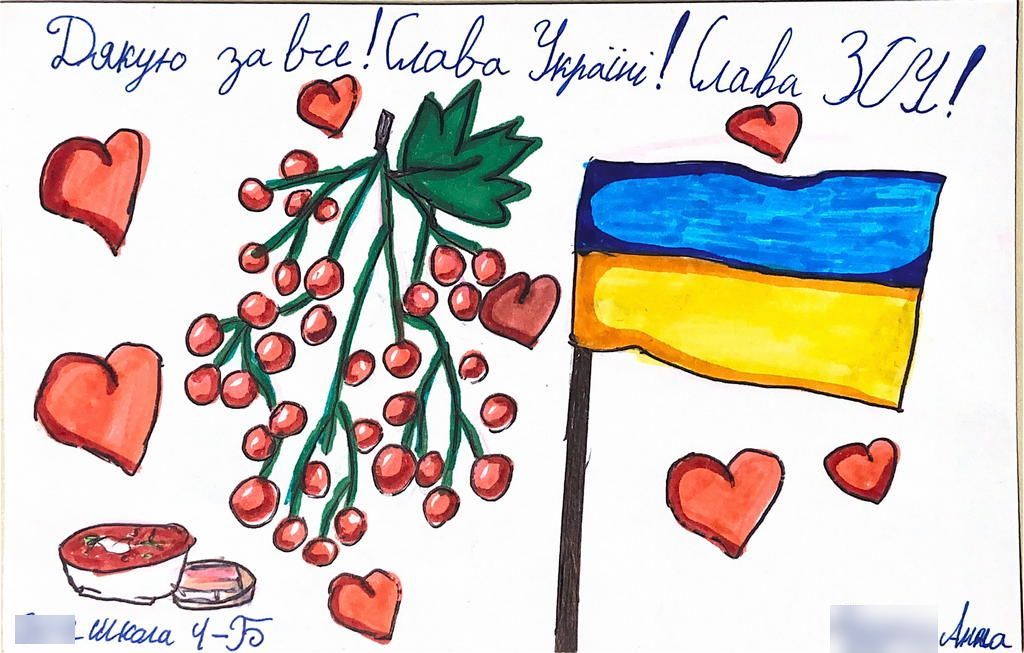 Дякую за все! Слава Україні! Слава ЗСУ!
школа 4-Б
Анна